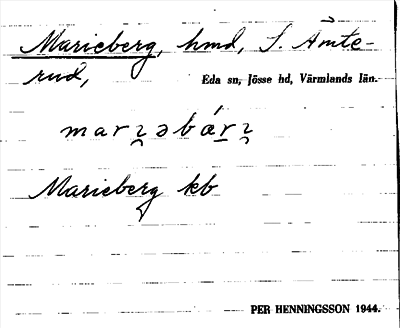 Marieberg, hmd, S. Åmte-
rud,
Eda sn, Jösse hd, Värmlands län.
marı̨əbárı̨
Marieberg kb
PER HENNINGSSON 1944.